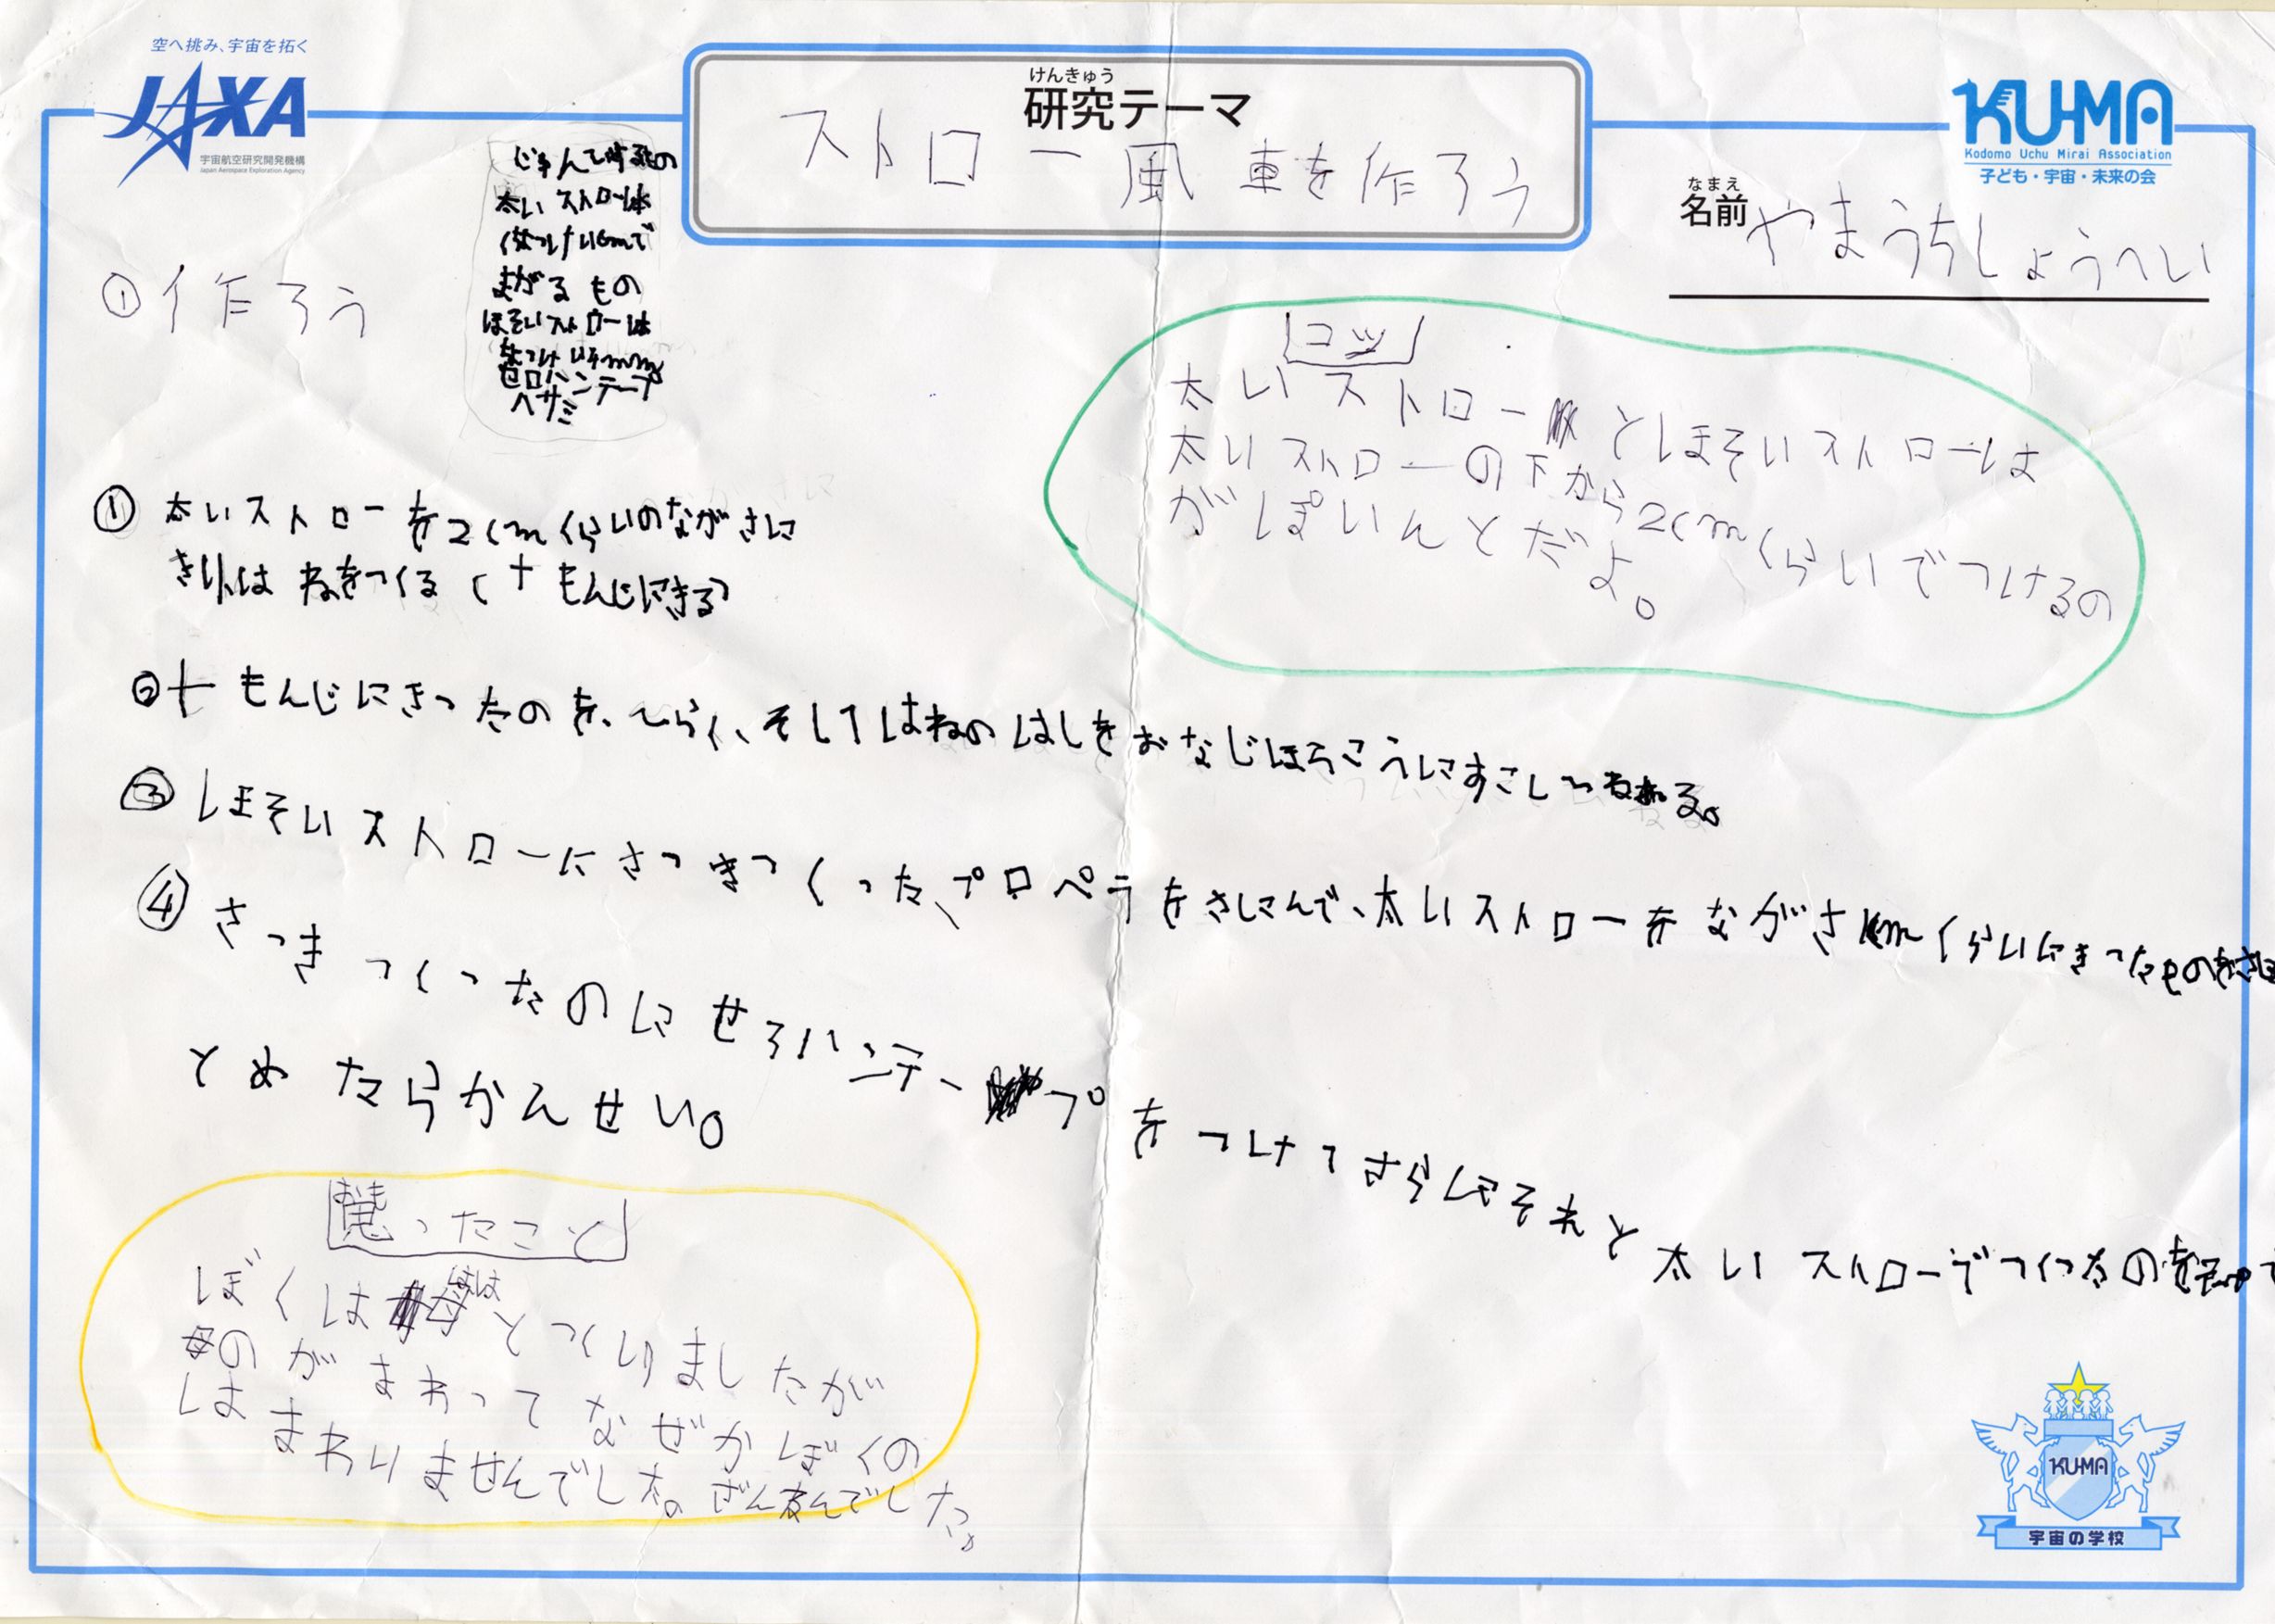 空へ挑み、宇宙を拓く
JAXA
宇宙航空研究開発機構
Japan Aerospace Exploration Agency
けんきゅう
研究テーマ
ストロー風車を作ろう
KU-MA
Kodomo Uchu Mirai Association
子ども・宇宙・未来の会
なまえ
名前 やまうちしょうへい
①作ろう
じゅんびするもの
太いストローは
まがるもの
ほそいストローは
セロハンテープ
ハサミ
コツ
太いストローとほそいストローは
太いストローの下から2cmくらいでつけるの
がぽいんとだよ。
① 太いストローを2cmくらいのながさに
きり、はねをつくる(十もんじにきる)
②十もんじにきったのを、ひらく、そしてはねのはしをおなじほうこうにすこしねる。
③ほそいストローにさっきつくった、プロペラをさしこんで、太いストローをながさcmくらいにきったものを
④さっきつくったのにせろハンテープをつけてさらにそれと太いストローでつくったのを
とめたらかんせい。
おも
思ったこと
はは
ぼくは母とつくりましたが
母のがまわってなぜかぼくの
はまわりませんでした。ざんねんでした。
KU-MA
宇宙の学校